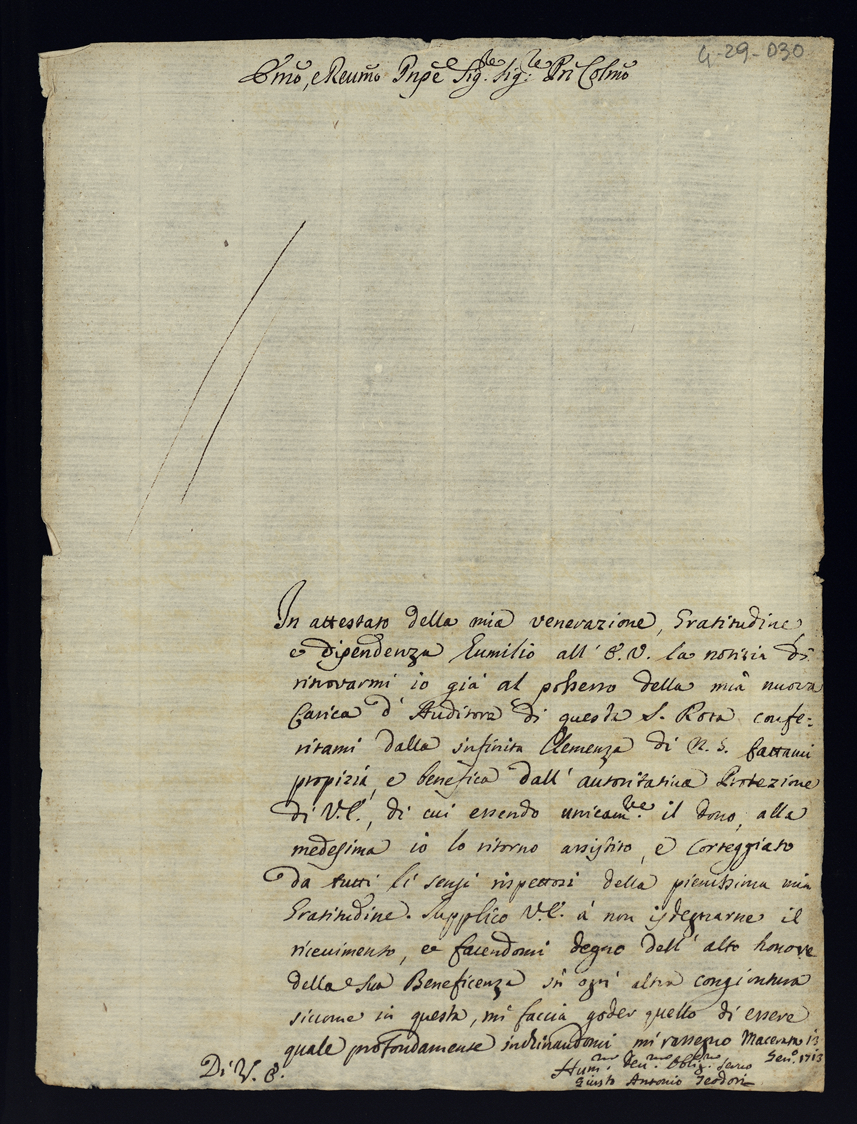 4-29-030
Emo, e Reumo Pnpe Sig.re Sig.re Pñ Colmo
In attestato della mia venerazione, Gratitudine
e dipendenza humilio all' E.V. la notizia di
ritrovarmi io già al possesso della mia nuova
Carica d'Auditore di questa S. Rota confe-
ritami dalla infinita Clemenza di N. S. fattami
propizia, e benefica dall' autoritativa Protezione
di V.E., di cui essendo unicam.te il dono, alla
medesima io lo ritorno assistito, e corteggiato
da tutti li sensi rispettosi della pienissima mia
Gratitudine. Supplico V.E. à non isdegnarne il
ricevimento, e facendomi degno dell' alto honore
della Sua Beneficenza in ogni altra congiuntura
siccome in questa, mi faccia goder quello di essere
quale profondamente inchinandomi mi rassegno Macerata 13
Gen.o 1713
Di V. E.
Hum.mo Deu.mo Oblig.mo Seruo
Giusto Antonio Teodori